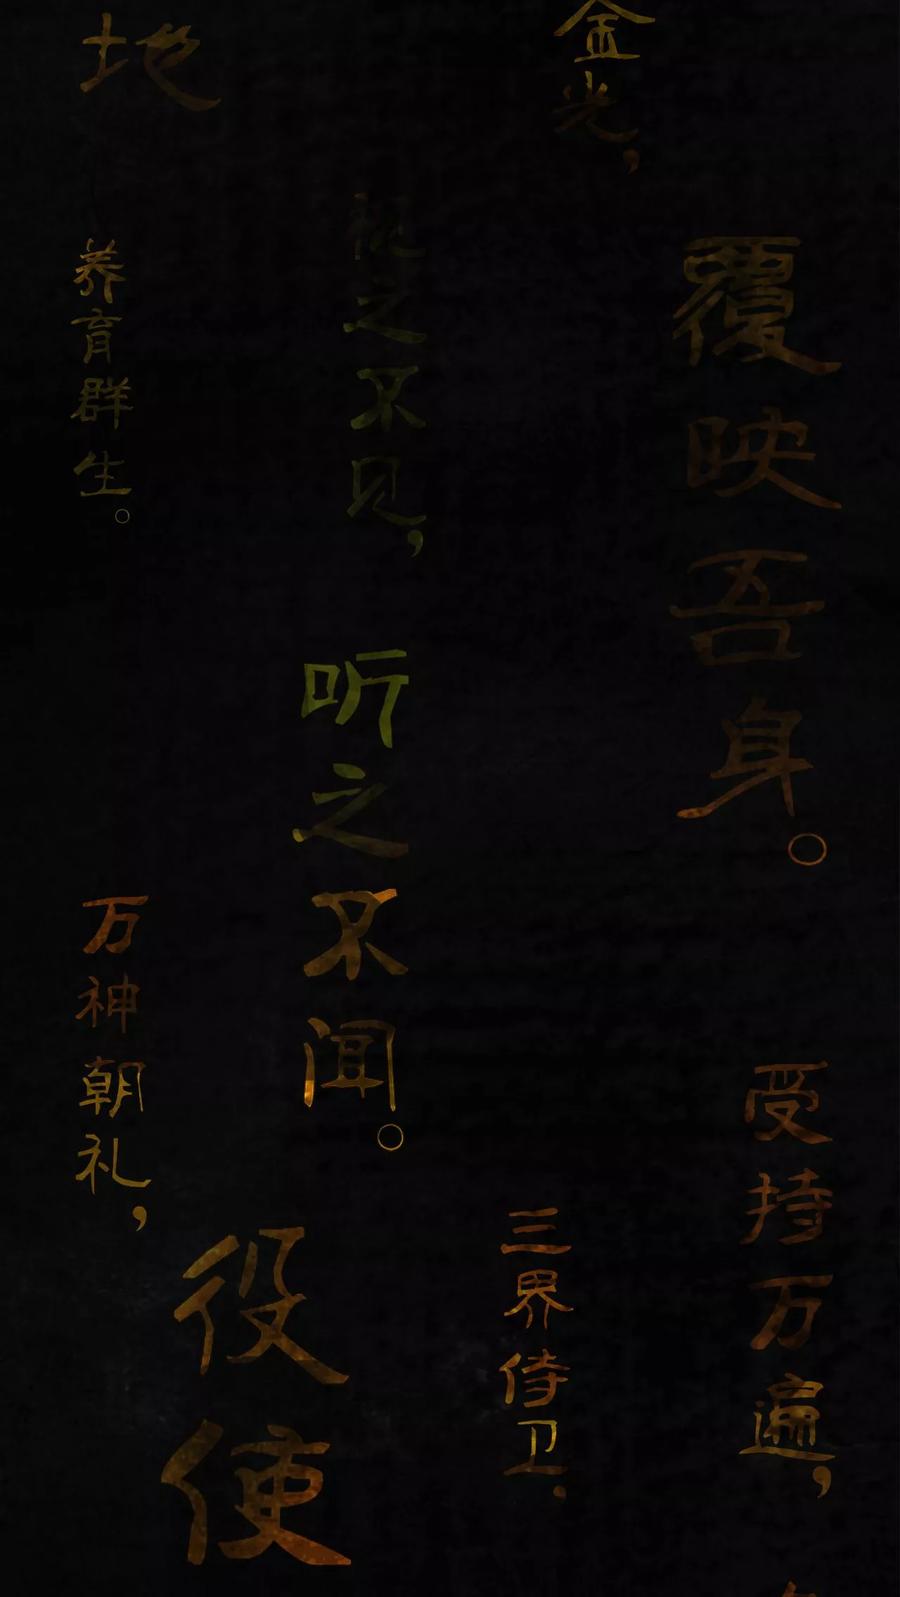 金光，
覆映吾身。
视之不见，
听之不闻。
地
养育群生。
受持万遍，
三界侍卫，
万神朝礼，
役使